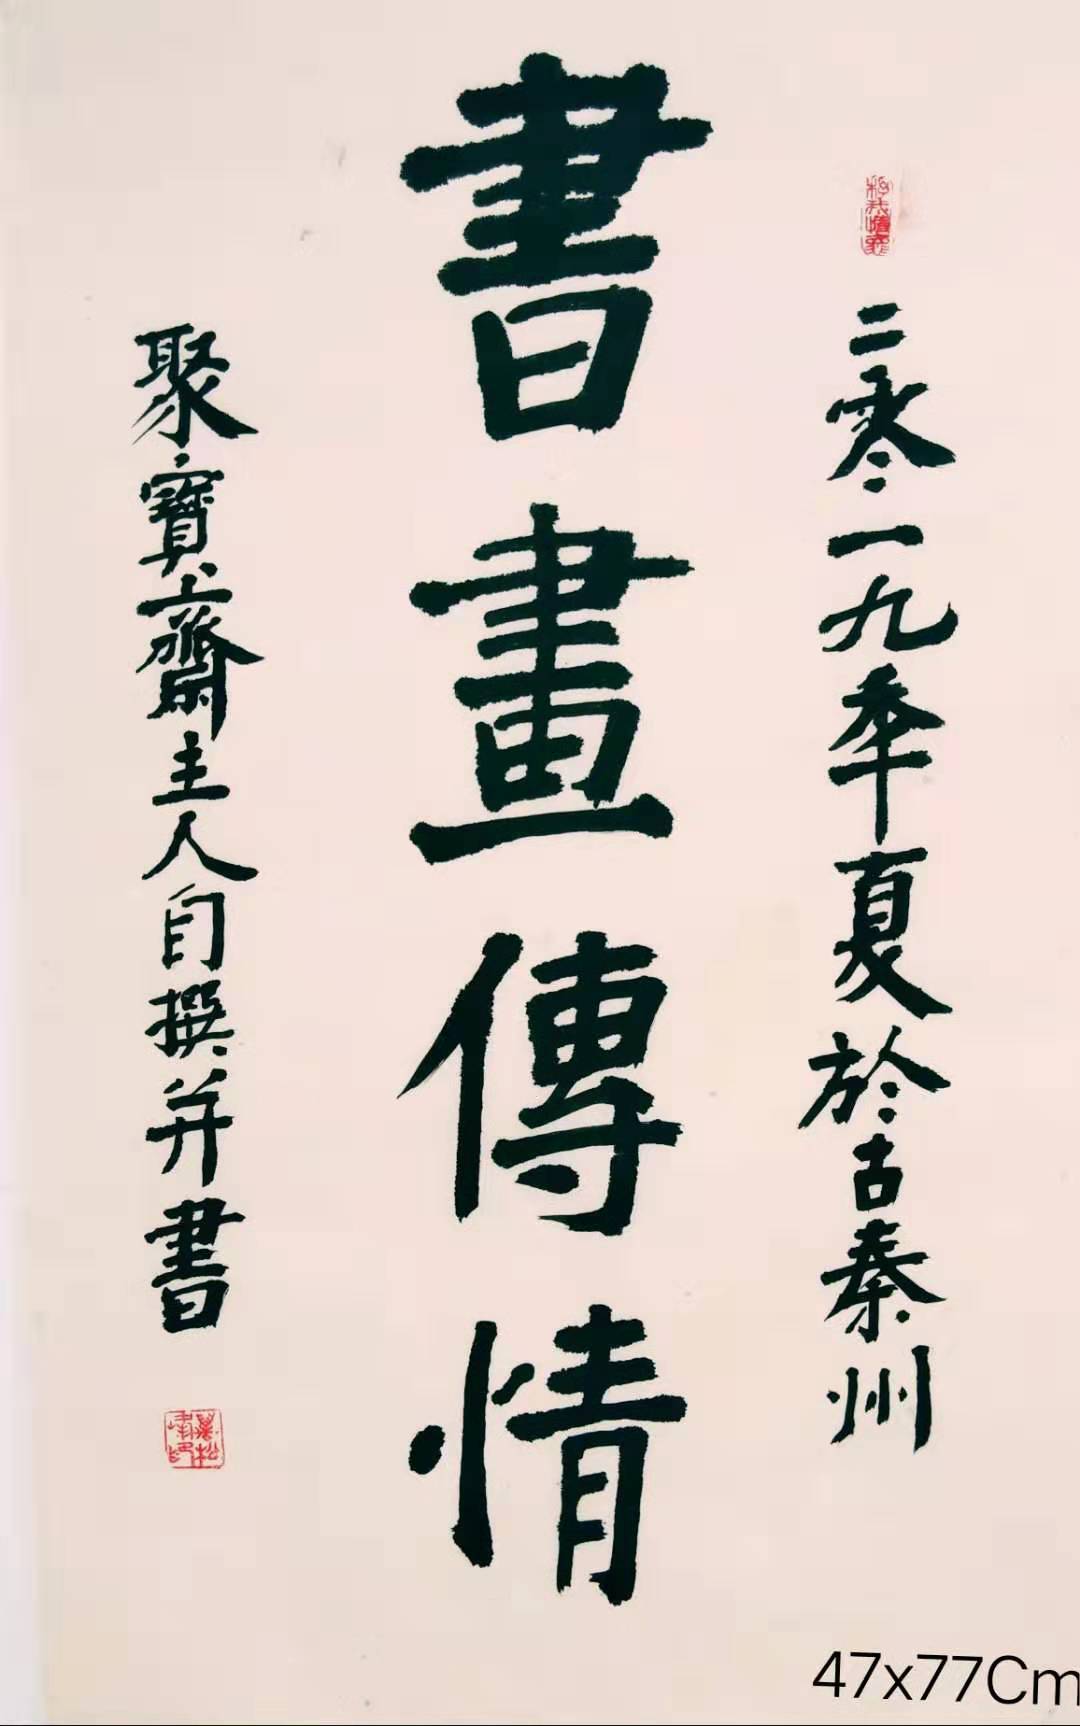 二零一九年夏於古秦州
書畫傳情
聚寶齋主人自撰并書
47x77Cm